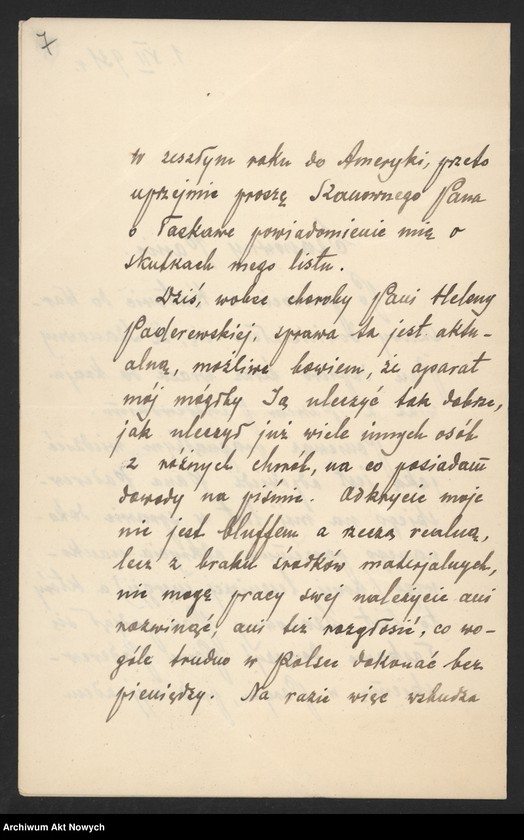 7
w zeszłym roku do Ameryki, przeto
uprzejmie proszę Szanownego Pana
o łaskawe powiadomienie mię o
skutkach mego listu.
Dziś, wobec choroby Pani Heleny
Paderewskiej, sprawa ta jest aktu-
alną, możliwe bowiem, że aparat
mój mógłby Ją uleczyć tak dobrze,
jak uleczył już wiele innych osób
z różnych chorób, na co posiadam
dowody na piśmie. Odkrycie moje
nie jest bluffem a rzeczą realną,
lecz z braku środków materjalnych,
nie mogę pracy swej należycie ani
rozwinąć, ani też rozgłosić, co wo-
góle trudno w Polsce dokonać bez
pieniędzy. Na razie więc wzbudza
Archiwum Akt Nowych